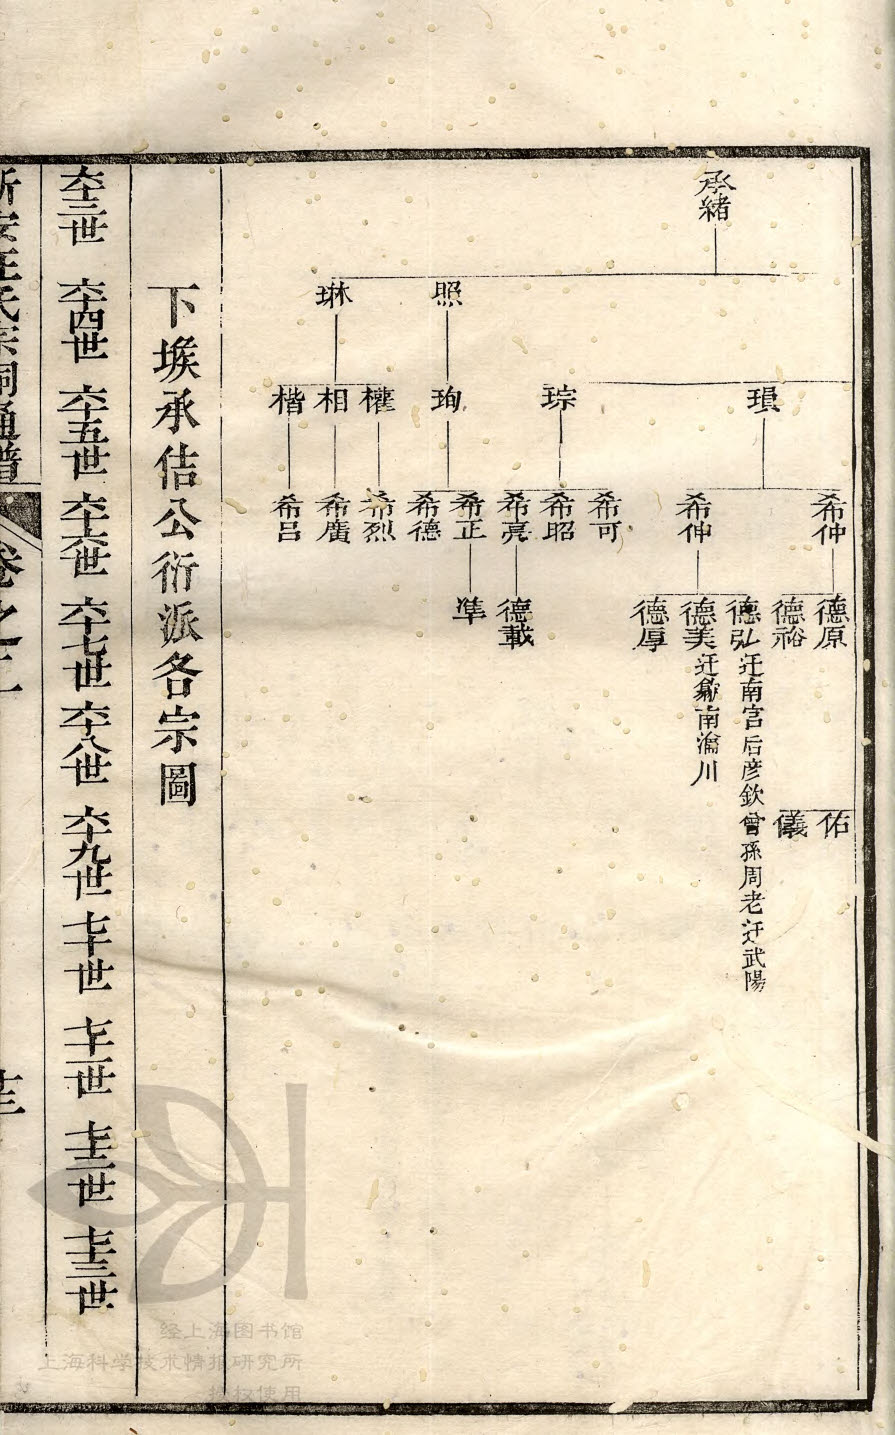 承緒
照
琳
瑻
琮
珣
權
相
楷
希仲
希仲
希可
希昭
希亮
希正
希德
希烈
希廣
希吕
德原
德裕
德弘 迁南宫后彦欽曾孫周老迁武陽
德美 迁歙南瀹川
德厚
德載
準
佑
儀
下塘承佶公衍派各宗圖
六十三世 六十四世 六十五世 六十六世 六十七世 六十八世 六十九世 七十世 七十一世 七十二世 七十三世
新安汪氏宗祠通譜 卷之三 十三
经上海图书馆
上海科学技术情报研究所
授权使用